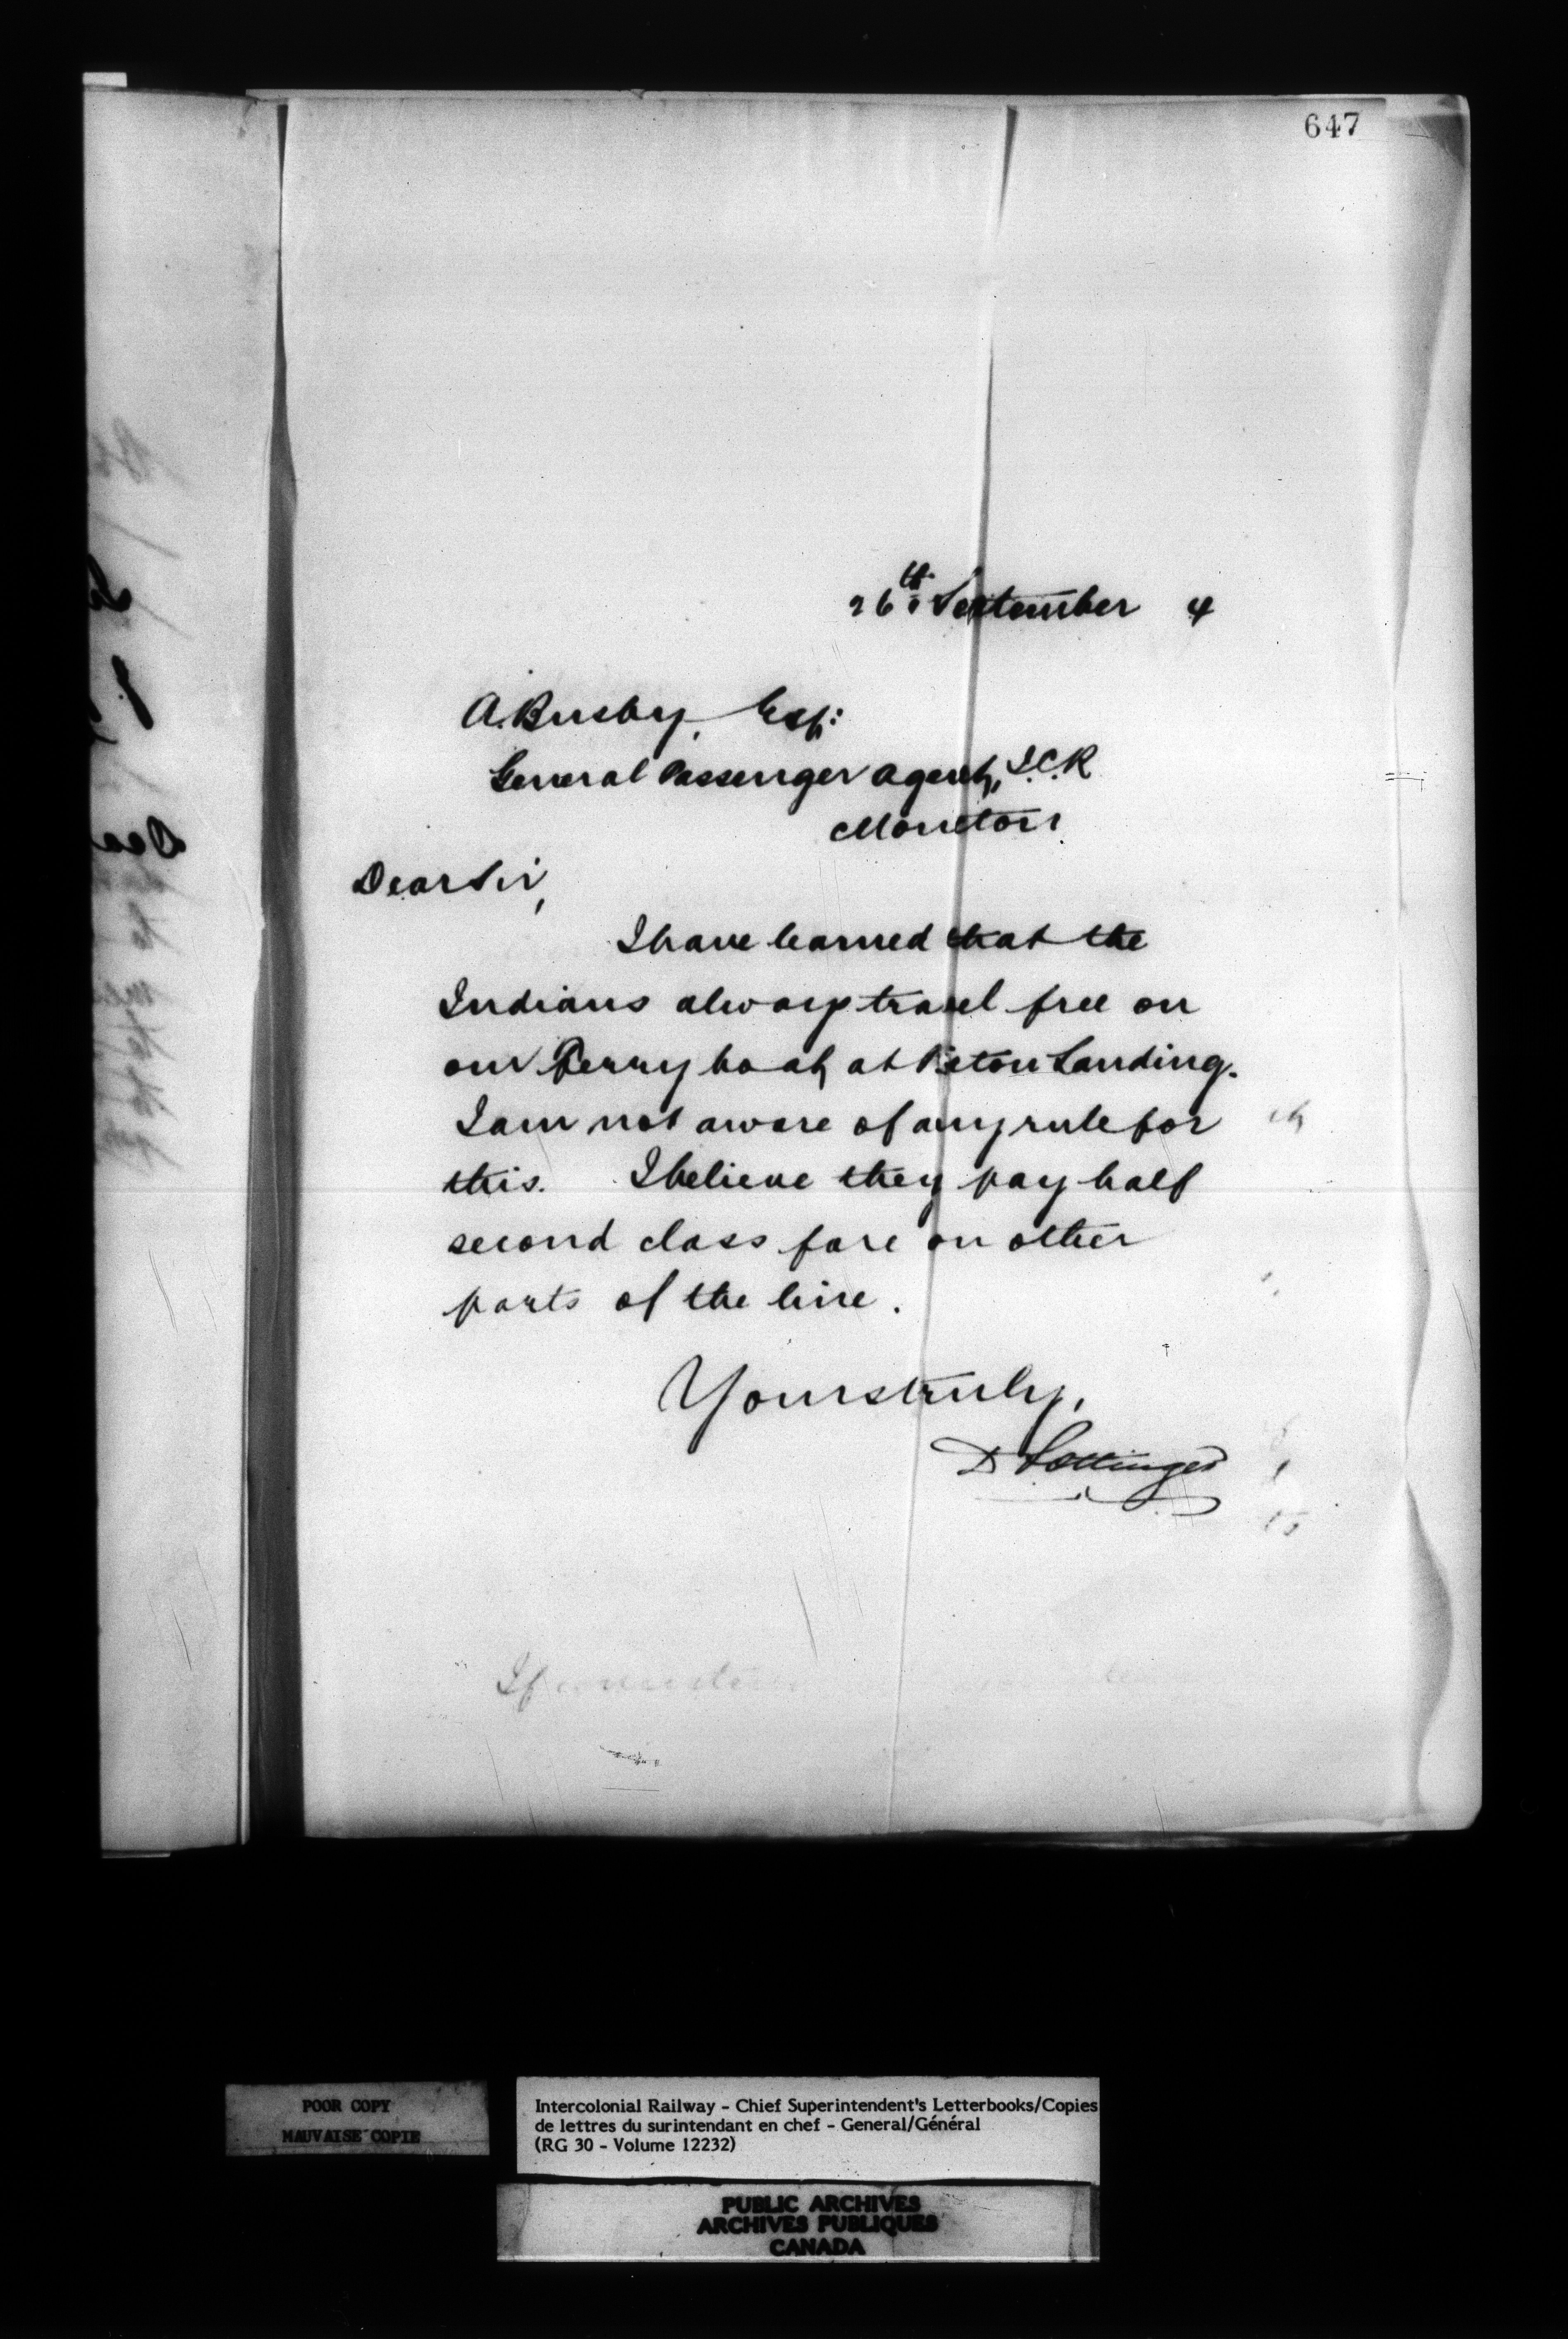 647
26th September 4
A. Busby, Esq:
General Passenger Agent, I.C.R
Moncton
Dear Sir,
I have learned that the
Indians always travel free on
our Ferry boat at Pictou Landing.
I am not aware of any rule for
this. I believe they pay half
second class fare on other
parts of the line.
Yours truly,
D Pottinger
If
POOR COPY
MAUVAISE COPIE
Intercolonial Railway - Chief Superintendent's Letterbooks/Copies
de lettres du surintendant en chef - General/Général
(RG 30 - Volume 12232)
PUBLIC ARCHIVES
ARCHIVES PUBLIQUES
CANADA